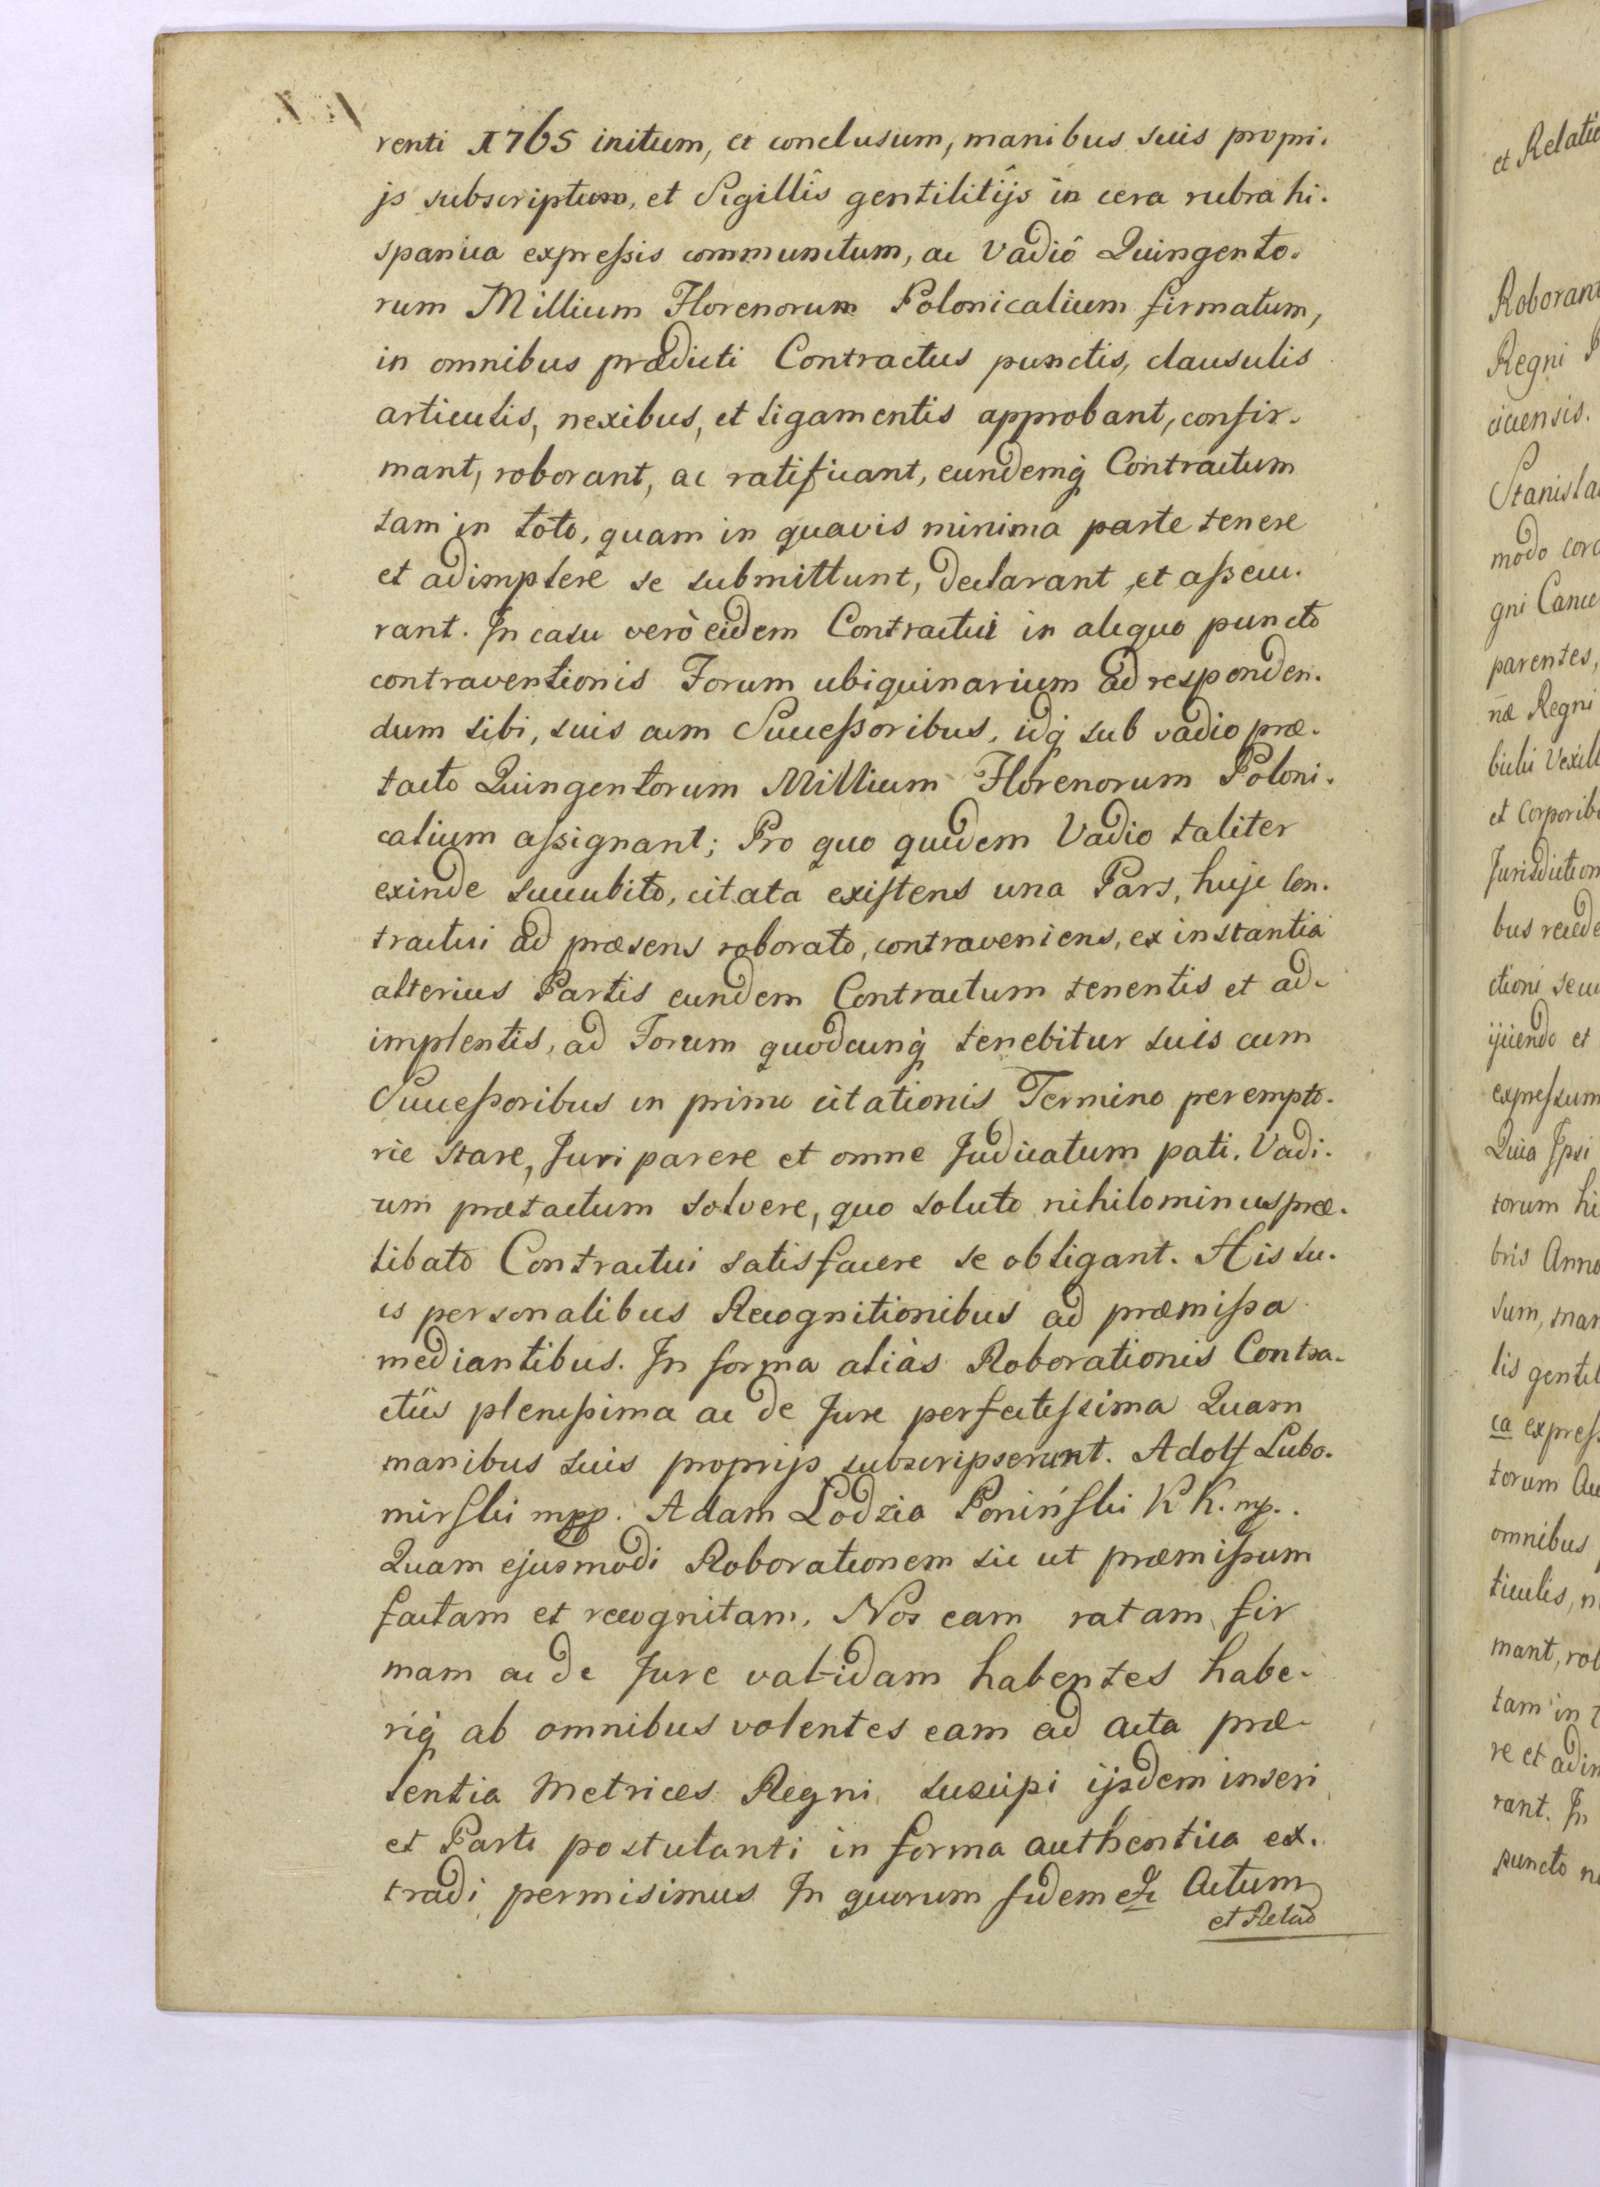 renti 1765 initum, et conclusum, manibus suis propri.
js subscriptum, et Sigillis gentilitijs in cera rubra hi.
spanica expreſsis communitum, ac Vadiô Quingento.
rum Millium Florenorum Polonicalium firmatum,
in omnibus prædicti Contractus punctis, clausulis
articulis, nexibus, et ligamentis approbant, confir.
mant, roborant, ac ratificant, eundemq́ Contractum
tam in toto, quam in quavis minima parte tenere
et adimplere se submittunt, declarant et aſsecu.
rant. In casu verò eidem Contractui in aliquo puncto
contraventionis Forum ubiquinarium ad responden.
dum sibi, suis cum Succeſsoribus, idq́ sub vadio præ.
tacto Quingentorum Millium Florenorum Poloni.
calium aſsignant; Pro quo quidem Vadio taliter
exinde succubito, citata exiſtens una Pars, huic Con.
tractui ad præsens roborato, contraveniens, ex instantia
alterius Partis eundem Contractum tenentis et ad.
implentis, ad Forum quodcunq́ tenebitur suis cum
Succeſsoribus in primo citationis Termino perempto.
rie stare, Juri parere et omne Judicatum pati. Vadi.
um prætactum solvere, quo soluto nihilominus præ.
libato Contractui satisfacere se obligant. His su.
is personalibus Recognitionibus ad præmiſsa
mediantibus. In forma aliàs Roborationis Contra.
ctûs pleniſsima ac de Jure perfectiſsima Quam
manibus suis proprijs subscripserunt. Adolf Lubo.
mirſki mpp. Adam Lodzia Poninſki K K. mp.
Quam ejusmodi Roborationem sic ut præmiſsum
factam et recognitam, Nos eam ratam fir
mam ac de Jure validam habentes habe.
riq́ ab omnibus volentes eam ad acta præ.
sentia Metrices Regni suscipi ijsdem inseri
et Parti postulanti in forma authentica ex.
tradi permisimus In quorum fidem etc Actum
et Relatio
et Relatio
Roborant
Regni P
ciuensis.
Stanisla
modo cora
gni Cance
parentes,
næ Regni
biclii Vexill
et Corporib
Jurisdiction
bus recede
ctioni seu
ijciendo et
expreſsum
Quia Ipsi
torum hi
bris Anno
sum, man
lis gentil
ca expreſs
torum Au
omnibus p
ticulis, n
mant, rob
tam in t
re et adim
rant. In
puncto n